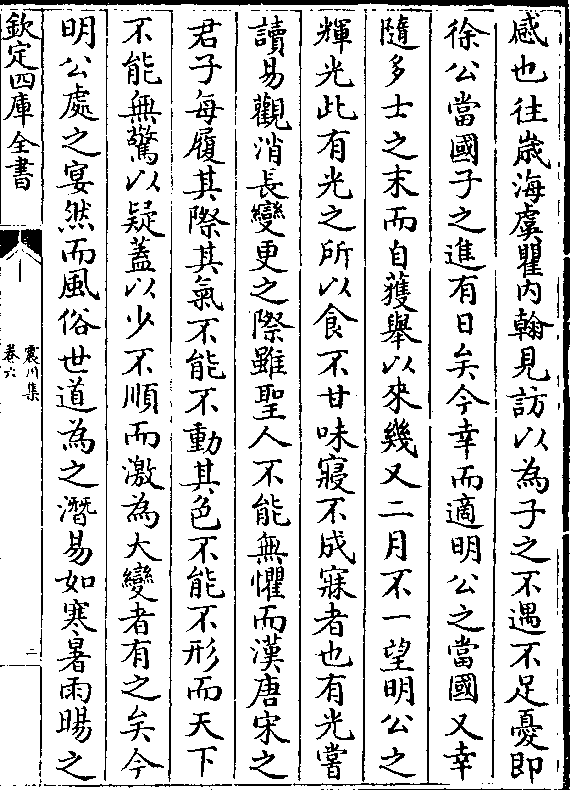 感也往歲海虞瞿内翰見訪以為子之不遇不足憂即
徐公當國子之進有日矣今幸而適明公之當國又幸
隨多士之末而自獲舉以來幾又二月不一望明公之
輝光此有光之所以食不甘味寢不成寐者也有光嘗
讀易觀消長變更之際雖聖人不能無懼而漢唐宋之
君子每履其際其氣不能不動其色不能不形而天下
不能無驚以疑蓋以少不順而激為大變者有之矣今
明公處之宴然而風俗世道為之潛易如寒暑雨暘之
欽定四庫全書
震川集
卷六
二